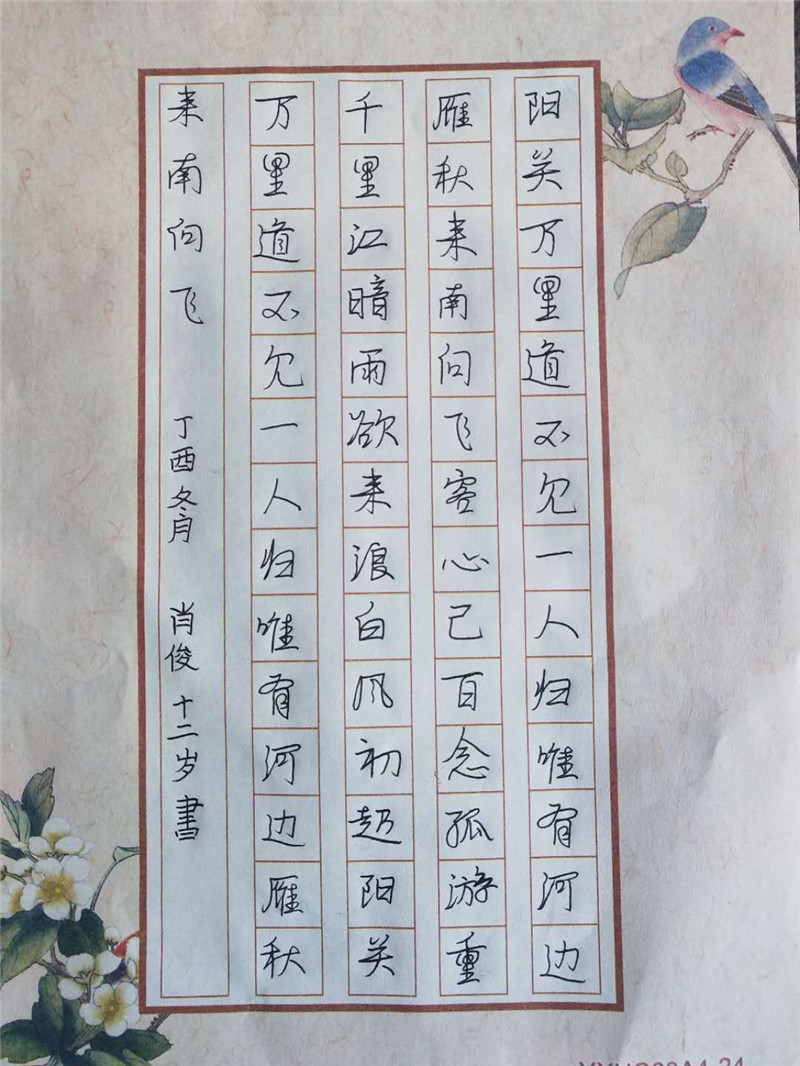 阳关万里道不见一人归唯有河边
雁秋来南向飞客心已百念孤游重
千里江暗雨欲来浪白风初起阳关
万里道不见一人归唯有河边雁秋
来南向飞 丁酉冬月 肖俊十二岁書